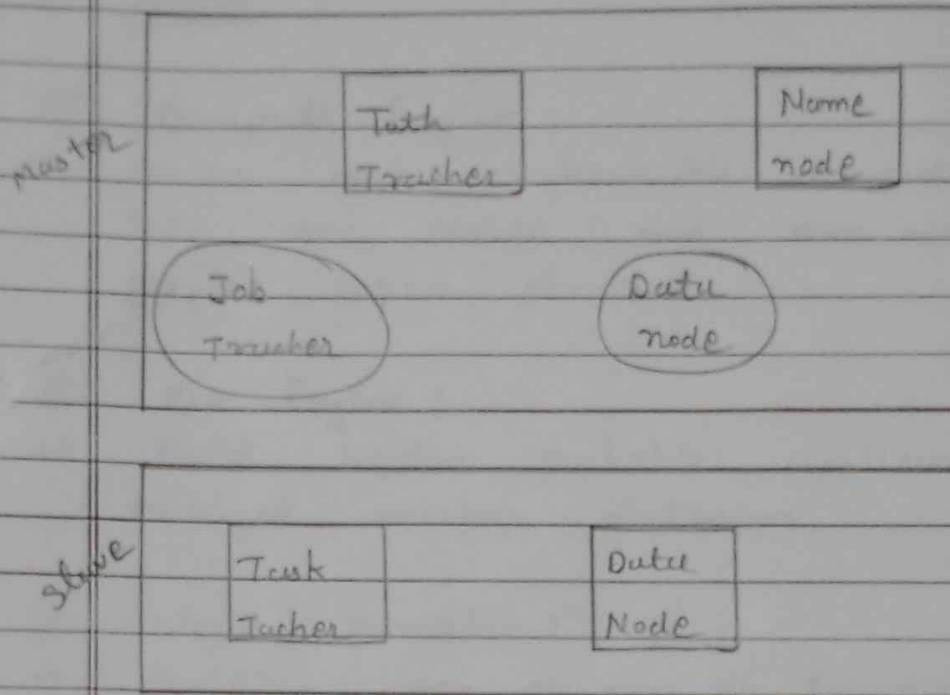 Master
Task
Tracker
Name
node
Job
Tracker
Data
node
Slave
Task
Tacker
Data
Node